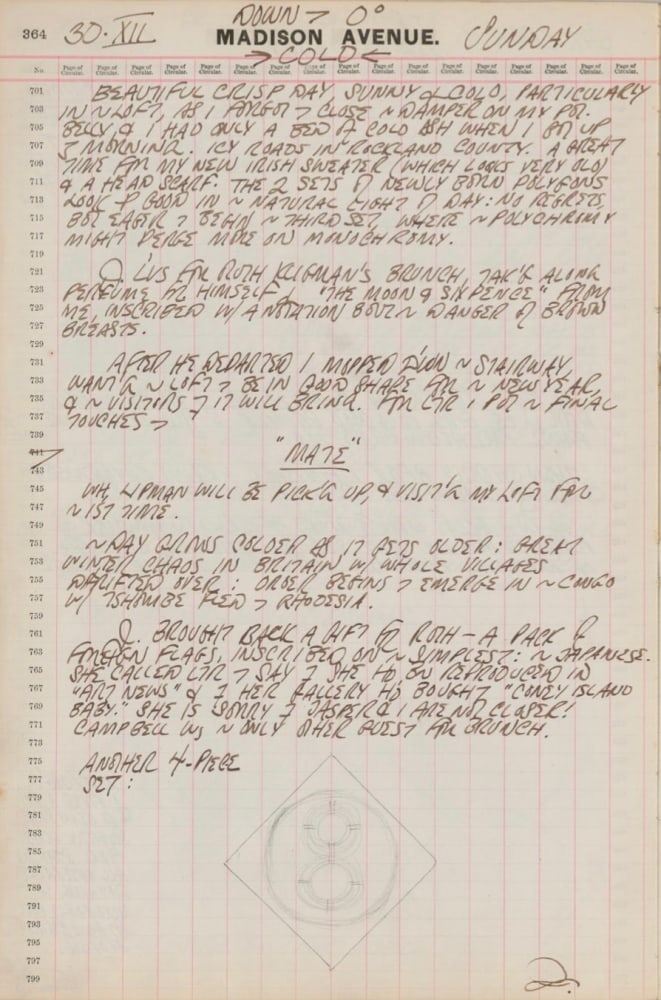 DOWN → 0°
364 30·XII MADISON AVENUE. SUNDAY
→ COLD ←
No. Page of Circular. Page of Circular. Page of Circular. Page of Circular. Page of Circular. Page of Circular. Page of Circular. Page of Circular. Page of Circular. Page of Circular. Page of Circular. Page of Circular. Page of Circular. Page of Circular. Page of Circular. Page of Circular. Page of Circular.
701 BEAUTIFUL CRISP DAY, SUNNY & COLD, PARTICULARLY
703 IN ~ LOFT, AS I FORGOT > CLOSE ~ DAMPER ON MY POT
705 BELLY, & I HAD ONLY A BED OF COLD ASH WHEN I GOT UP
707 MORNING. ICY ROADS IN ROCKLAND COUNTY. A GREAT
709 TIME FOR MY NEW IRISH SWEATER (WHICH LOOKS VERY OLD)
711 & A HEAD SCARF: THE 2 SETS OF NEWLY BORN POLYGONS
713 LOOK GOOD IN ~ NATURAL LIGHT OF DAY: NO REGRETS,
715 BUT EAGER > BEGIN ~ THIRD SET WHERE ~ POLYCHROMY
717 MIGHT VERGE MORE ON MONOCHROMY.
719
721 FOR RUTH KLIGMAN'S BRUNCH, TAK'G ALONG
723 PERFUME FR HIMSELF & "THE MOON & SIXPENCE" FROM
725 ME, INSCRIBED W/ A NOTATION ~ DANGER OF BROWN
727 BREASTS.
729
731 AFTER HE DEPARTED I MOPPED DOWN ~ STAIRWAY,
733 WANT'G ~ LOFT > BE IN GOOD SHAPE FOR ~ NEW YEAR,
735 & ~ VISITORS IT WILL BRING. I PUT ~ FINAL
737 TOUCHES >
739
741 "MATE"
743
745 WH. LIPMAN WILL BE PICK'G UP, & VISIT'G MY LOFT FOR
747 ~ 1ST TIME.
749
751 ~ DAY GROWS COLDER AS IT GETS OLDER: GREAT
753 WINTER CHAOS IN BRITAIN W/ WHOLE VILLAGES
755 DRIFTED OVER; ORDER BEGINS > EMERGE IN ~ CONGO
757 W/ TSHOMBE FLED > RHODESIA.
759
761 BROUGHT BACK A GIFT FR RUTH — A PACK OF
763 FOREIGN FLAGS, INSCRIBED ON ~ SIMPLEST: ~ JAPANESE.
765 SHE CALLED LTR > SAY SHE HD BN REPRODUCED IN
767 "ART NEWS" & HER GALLERY HD BOUGHT "CONEY ISLAND
769 BABY." SHE IS SORRY JASPER & I ARE NOT CLOSER!
771 CAMPBELL WS ~ ONLY OTHER GUEST FOR BRUNCH.
773
775 ANOTHER 4-PIECE
777 SET:
779
781
783
785
787
789
791
793
795
797
799